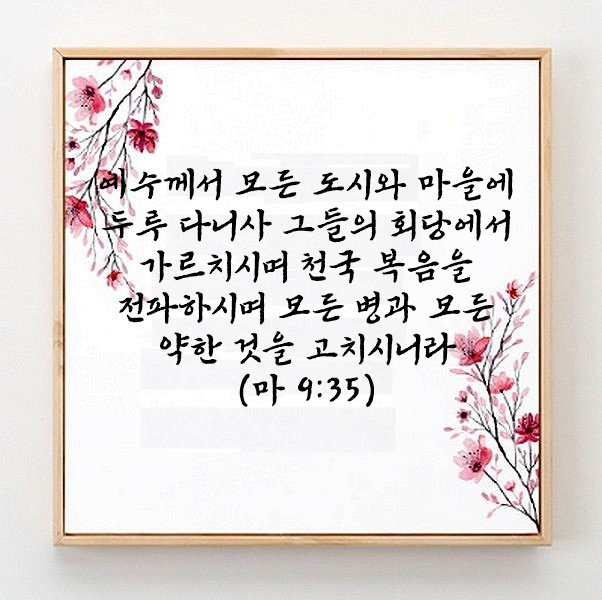 예수께서 모든 도시와 마을에
두루 다니사 그들의 회당에서
가르치시며 천국 복음을
전파하시며 모든 병과 모든
약한 것을 고치시니라
(마 9:35)